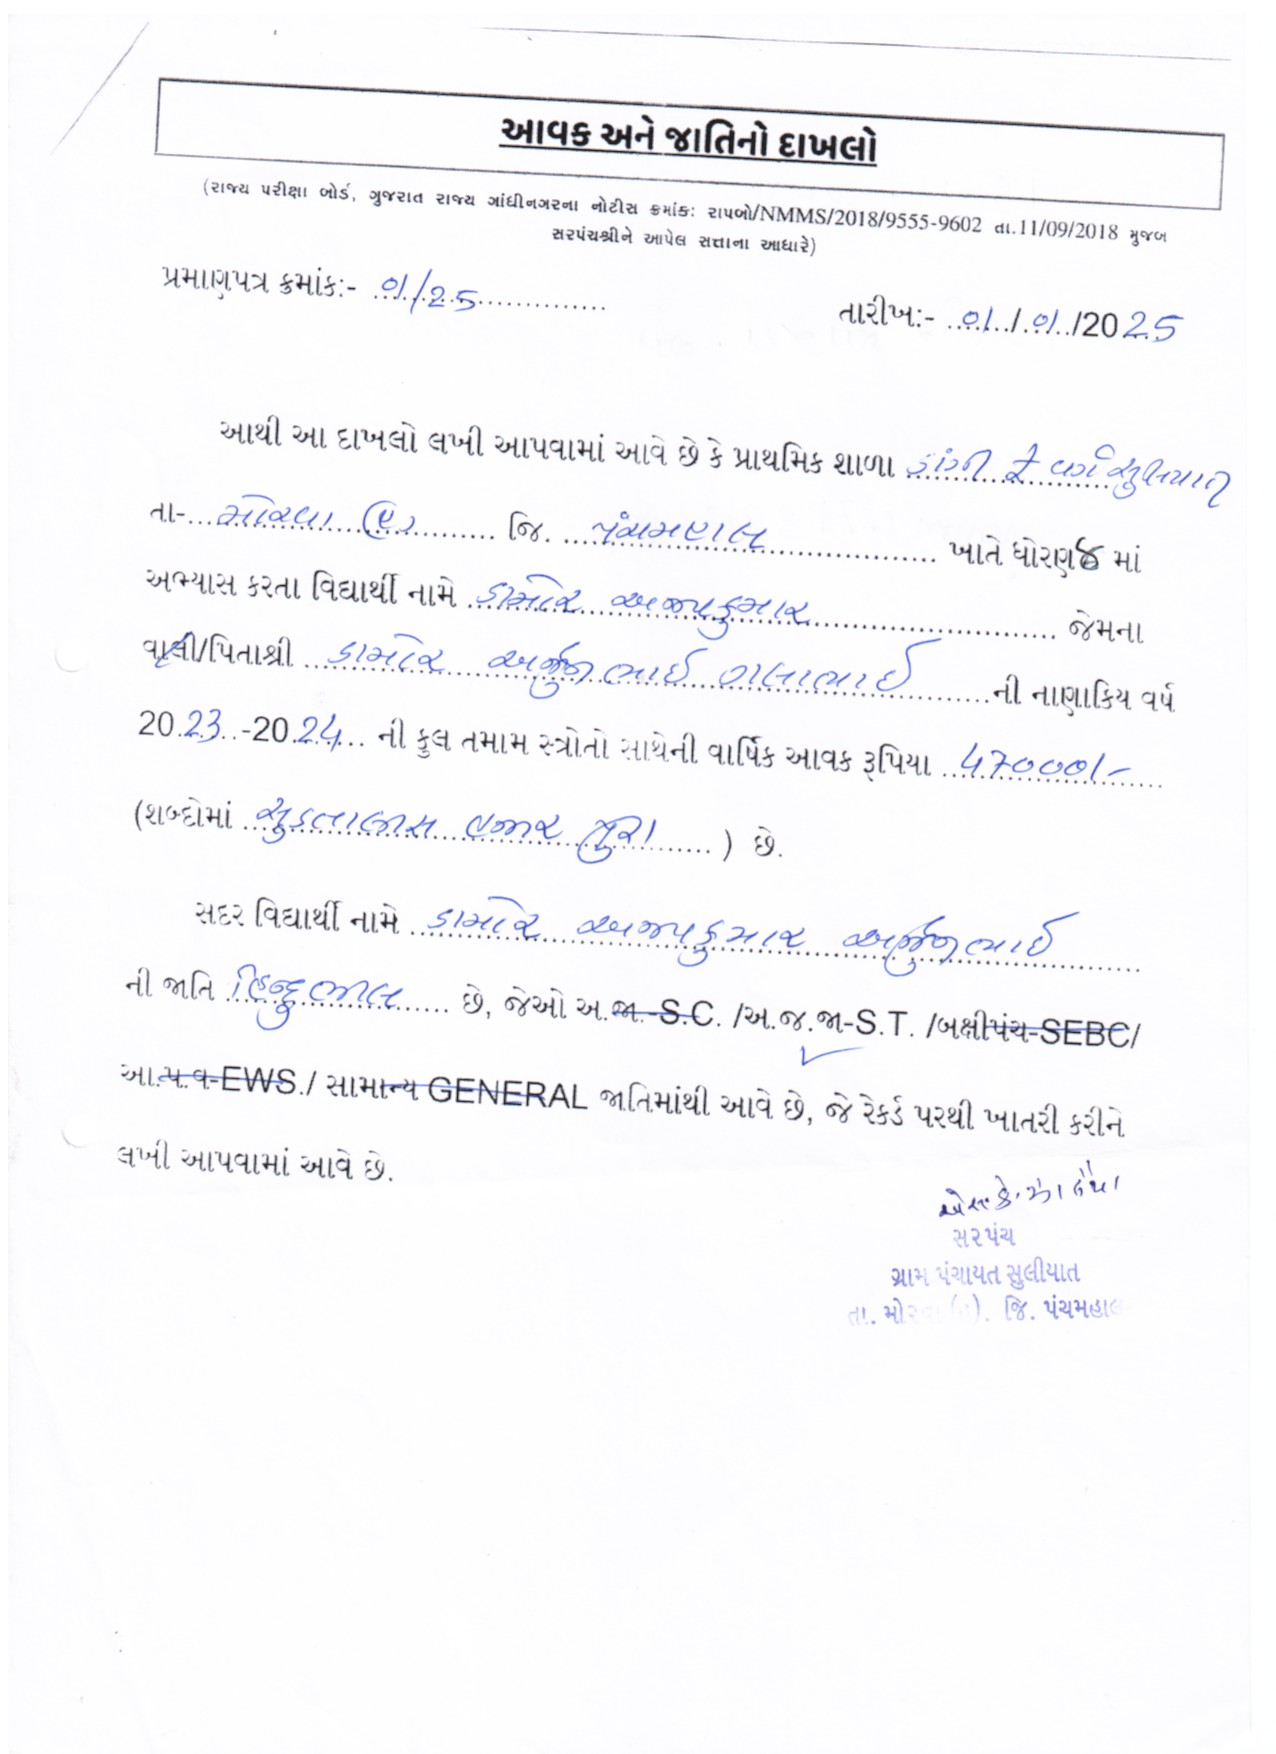 આવક અને જાતિનો દાખલો
(રાજ્ય પરીક્ષા બોર્ડ, ગુજરાત રાજ્ય ગાંધીનગરના નોટીસ ક્રમાંક: રાપબો/NMMS/2018/9555-9602 તા.11/09/2018 મુજબ
સરપંચશ્રીને આપેલ સત્તાના આધારે)
પ્રમાણપત્ર ક્રમાંક:- 01/25
તારીખ:- 01/01/2025
આથી આ દાખલો લખી આપવામાં આવે છે કે પ્રાથમિક શાળા ડાંગી ફ વર્ગ સુલિયાત
તા- મોરવા (હ) જિ. પંચમહાલ ખાતે ધોરણ 8 માં
અભ્યાસ કરતા વિદ્યાર્થી નામે ડામોર અજયકુમાર જેમના
વાલી/પિતાશ્રી ડામોર અર્જુનભાઈ ગલાભાઈ ની નાણાકિય વર્ષ
2023-2024 ની કુલ તમામ સ્ત્રોતો સાથેની વાર્ષિક આવક રૂપિયા 47000/-
(શબ્દોમાં સુડતાળીસ હજાર પુરા) છે.
સદર વિદ્યાર્થી નામે ડામોર અજયકુમાર અર્જુનભાઈ
ની જાતિ હિન્દુ ભીલ છે, જેઓ અ.જા.-S.C. /અ.જ.જા-S.T. /બક્ષીપંચ-SEBC/
આ.પ.વ-EWS./ સામાન્ય GENERAL જાતિમાંથી આવે છે, જે રેકર્ડ પરથી ખાતરી કરીને
લખી આપવામાં આવે છે.
સરપંચ
ગ્રામ પંચાયત સુલીયાત
તા. મોરવા(હ). જિ. પંચમહાલ